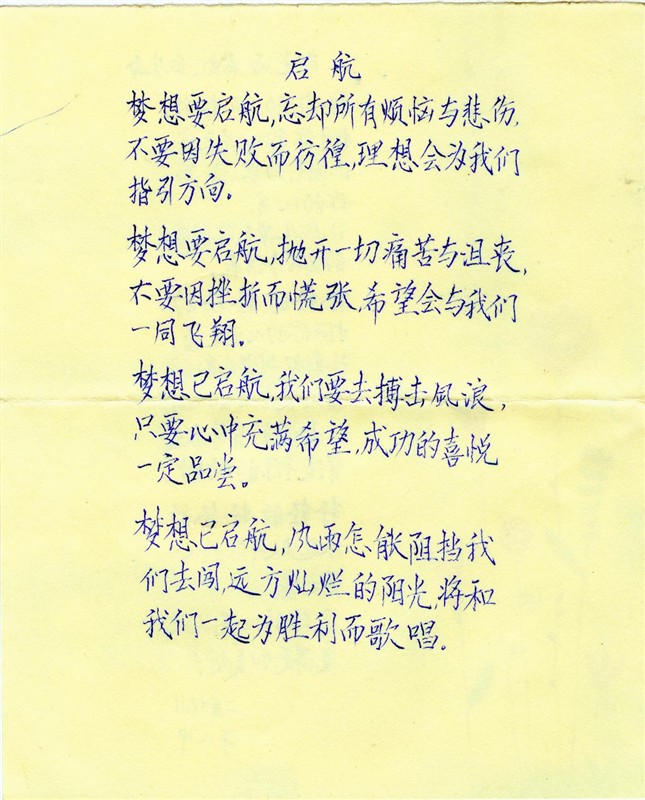 启航
梦想要启航，忘却所有烦恼与悲伤，
不要因失败而彷徨，理想会为我们
指引方向。
梦想要启航，抛开一切痛苦与沮丧，
不要因挫折而慌张，希望会与我们
一同飞翔。
梦想已启航，我们要去搏击风浪，
只要心中充满希望，成功的喜悦
一定品尝。
梦想已启航，风雨怎能阻挡我
们去闯，远方灿烂的阳光，将和
我们一起为胜利而歌唱。